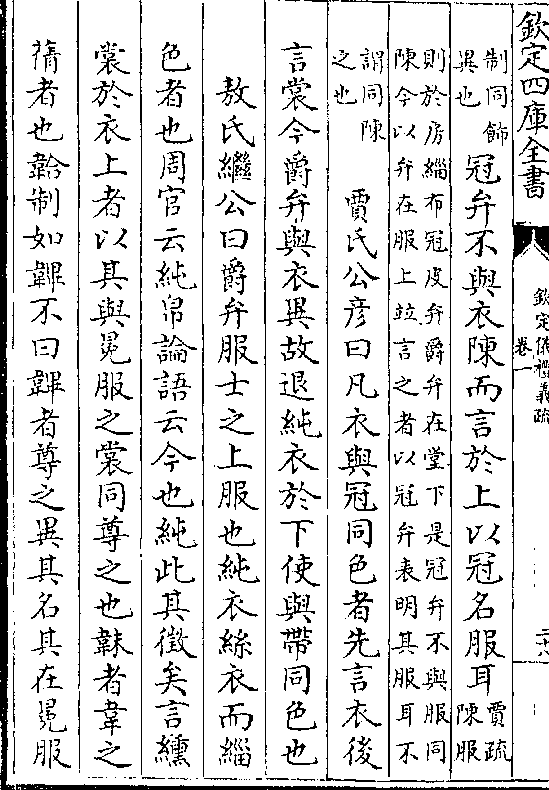 欽定四庫全書
欽定儀禮義疏
卷一
制同飾
異也
冠弁不與衣陳而言於上以冠名服耳
賈疏
陳服
則於房緇布冠皮弁爵弁在堂下是冠弁不與服同
陳今以弁在服上竝言之者以冠弁表明其服耳不
謂同陳
之也
賈氏公彦曰凡衣與冠同色者先言衣後
言裳今爵弁與衣異故退純衣於下使與帶同色也
敖氏繼公曰爵弁服士之上服也純衣絲衣而緇
色者也周官云純帛論語云今也純此其徵矣言纁
裳於衣上者以其與冕服之裳同尊之也韎者韋之
蒨者也韐制如韠不曰韠者尊之異其名其在冕服